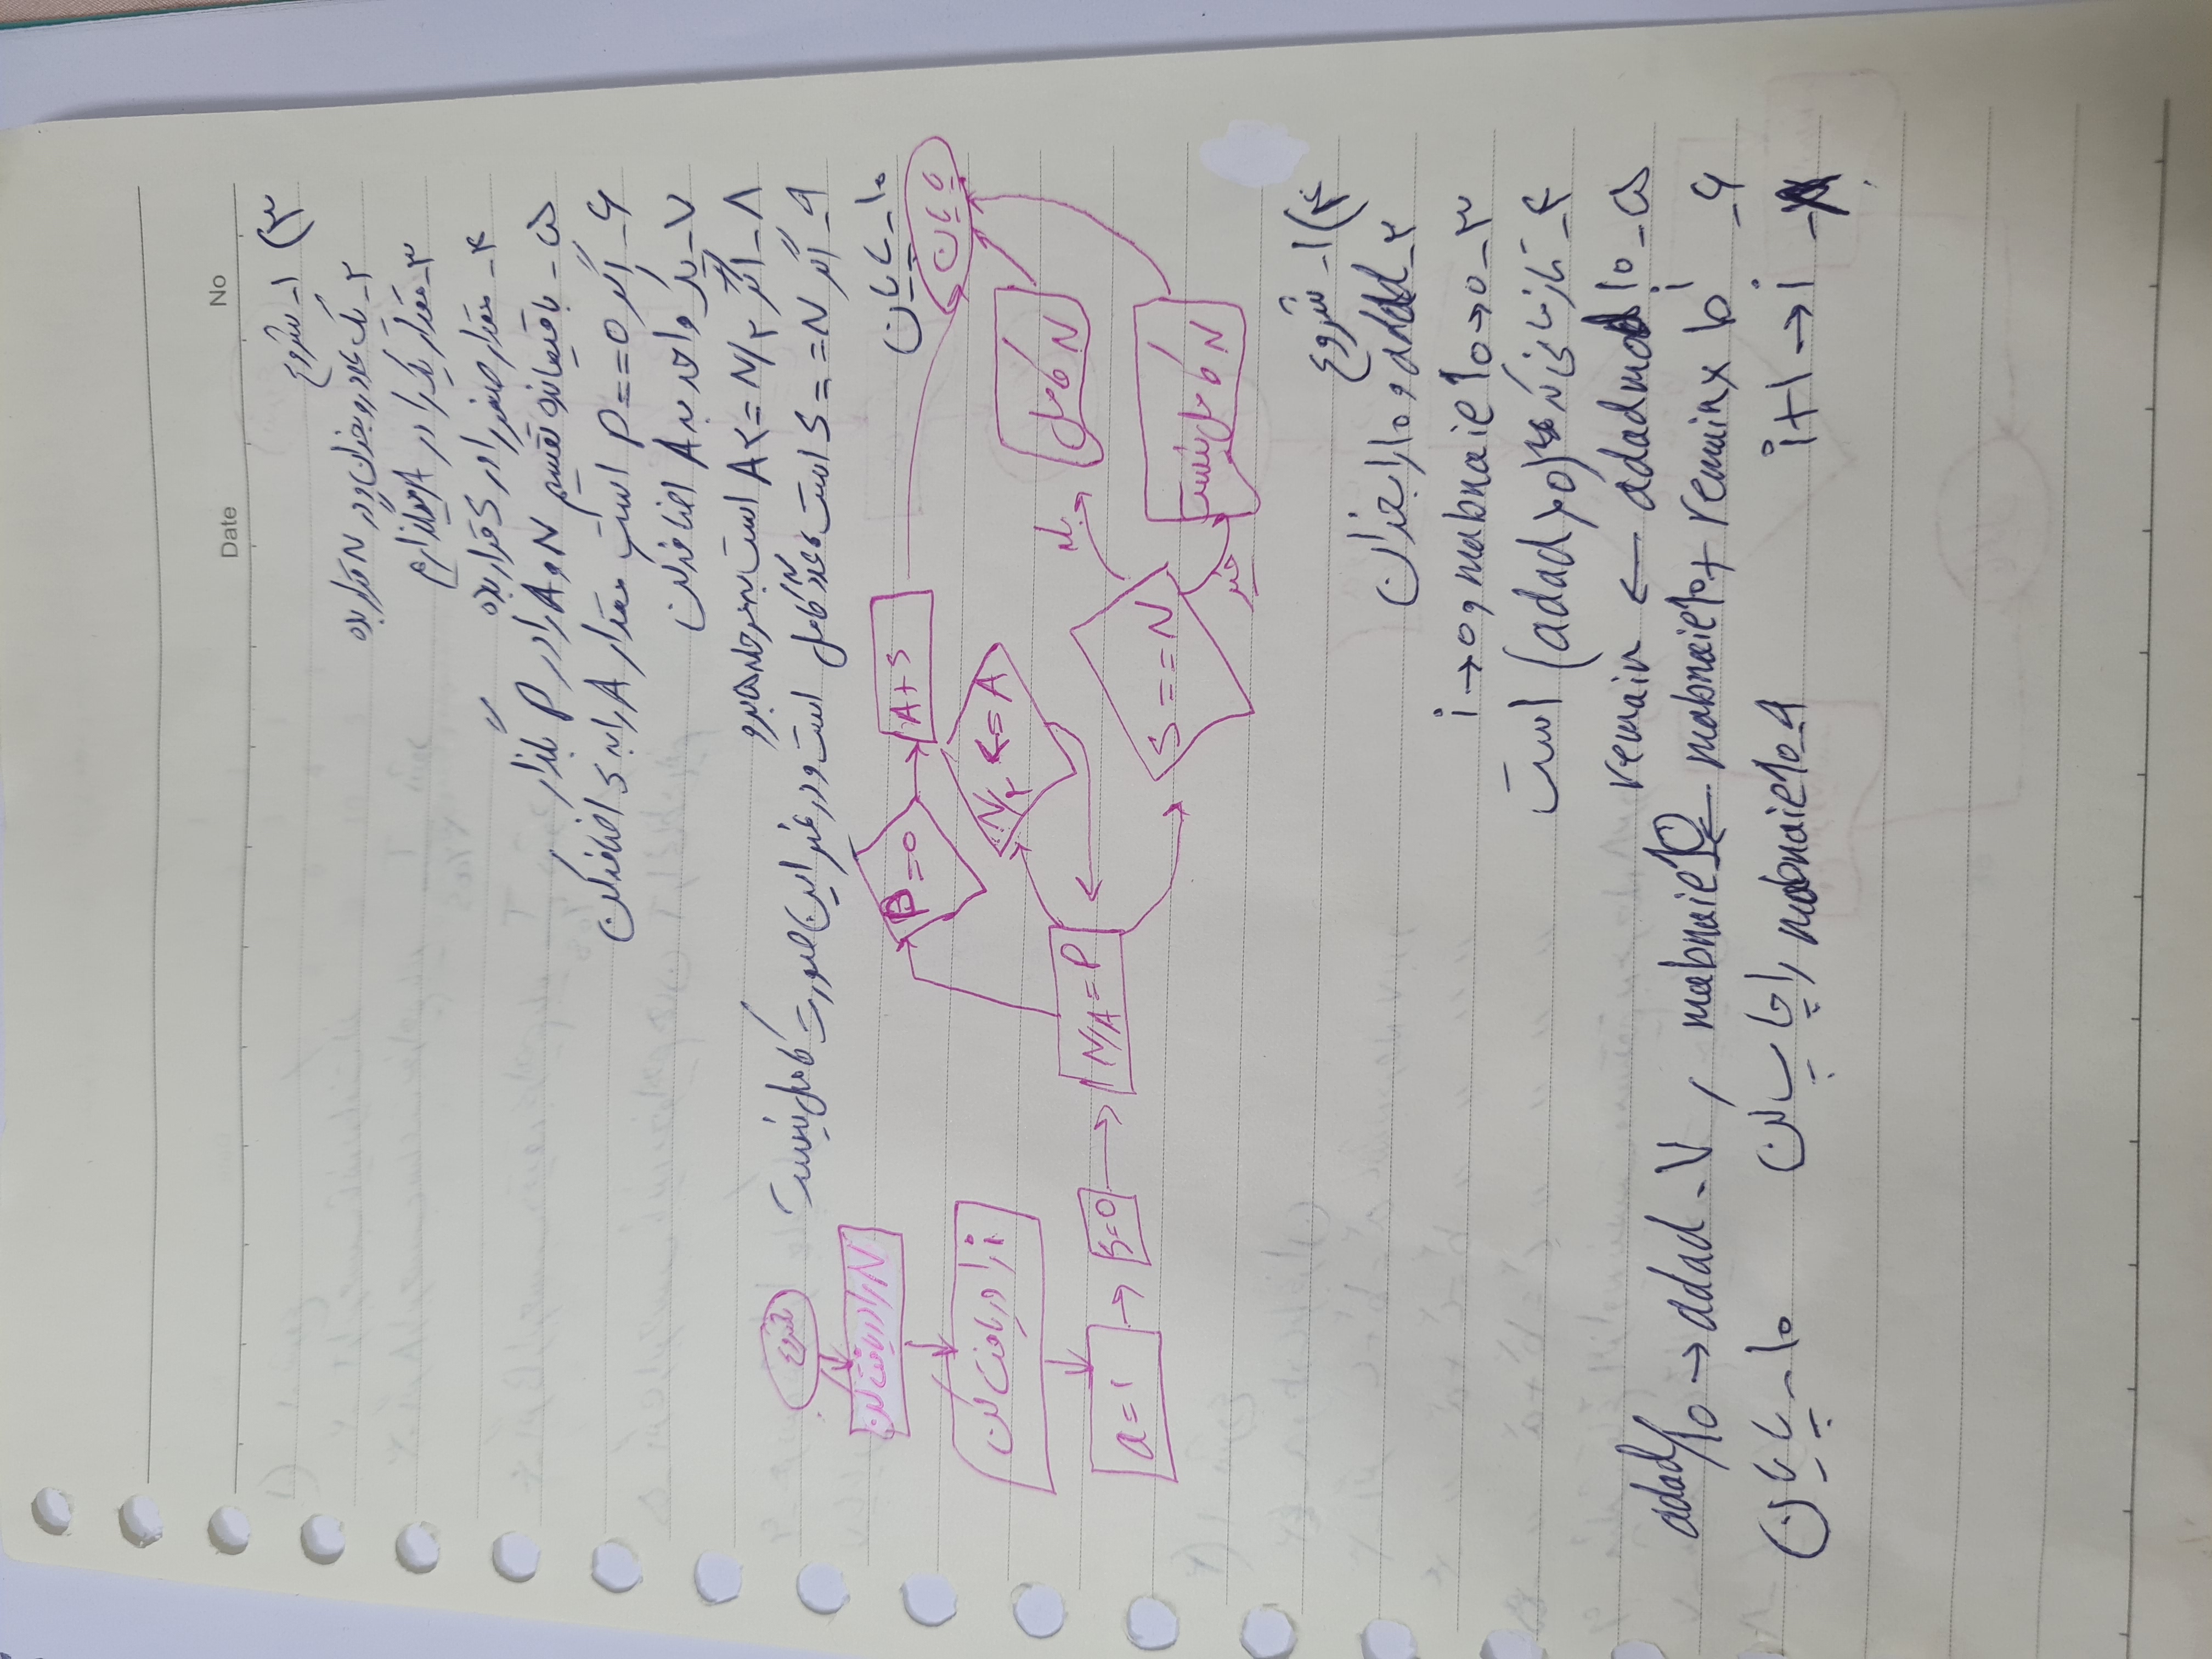 Date No
۳) ۱- شروع
۲- یک عدد رو بخوان و در N قرار بده
۳- مقدار یک را در A میگذارم
۴- مقدار صفر را در S قرار بده
۵- باقیمانده تقسیم N و A را در P بگذار
۶- اگر P==0 است مقدار A را به S اضافه کن
۷- یک واحد به A اضافه کن
۸- اگر A<=N/۲ است به مرحله ۵ برو
۹- اگر S==N است، عدد کامل است و در غیر این صورت کامل نیست
۱۰- پایان
شروع
N را دریافت کن
i را دریافت کن
a=1
S=0
N/A=P
P=0
A+S
N/۲ <=A
S==N
بله
N کامل
خیر
N کامل نیست
پایان
۴) ۱- شروع
۲- adad و ۱۰ را بخوان
۳- mabnaie10→0 و i→0
۴- تا زمانی که (adad>0) است
۵- remain ← adad mod 10
۶- mabnaie10 ← mabnaie10 + remain × b^i , ۷- adad/10 → adad
۸- i+1 → i
۹- mabnaie10 را چاپ کن ۱۰- پایان